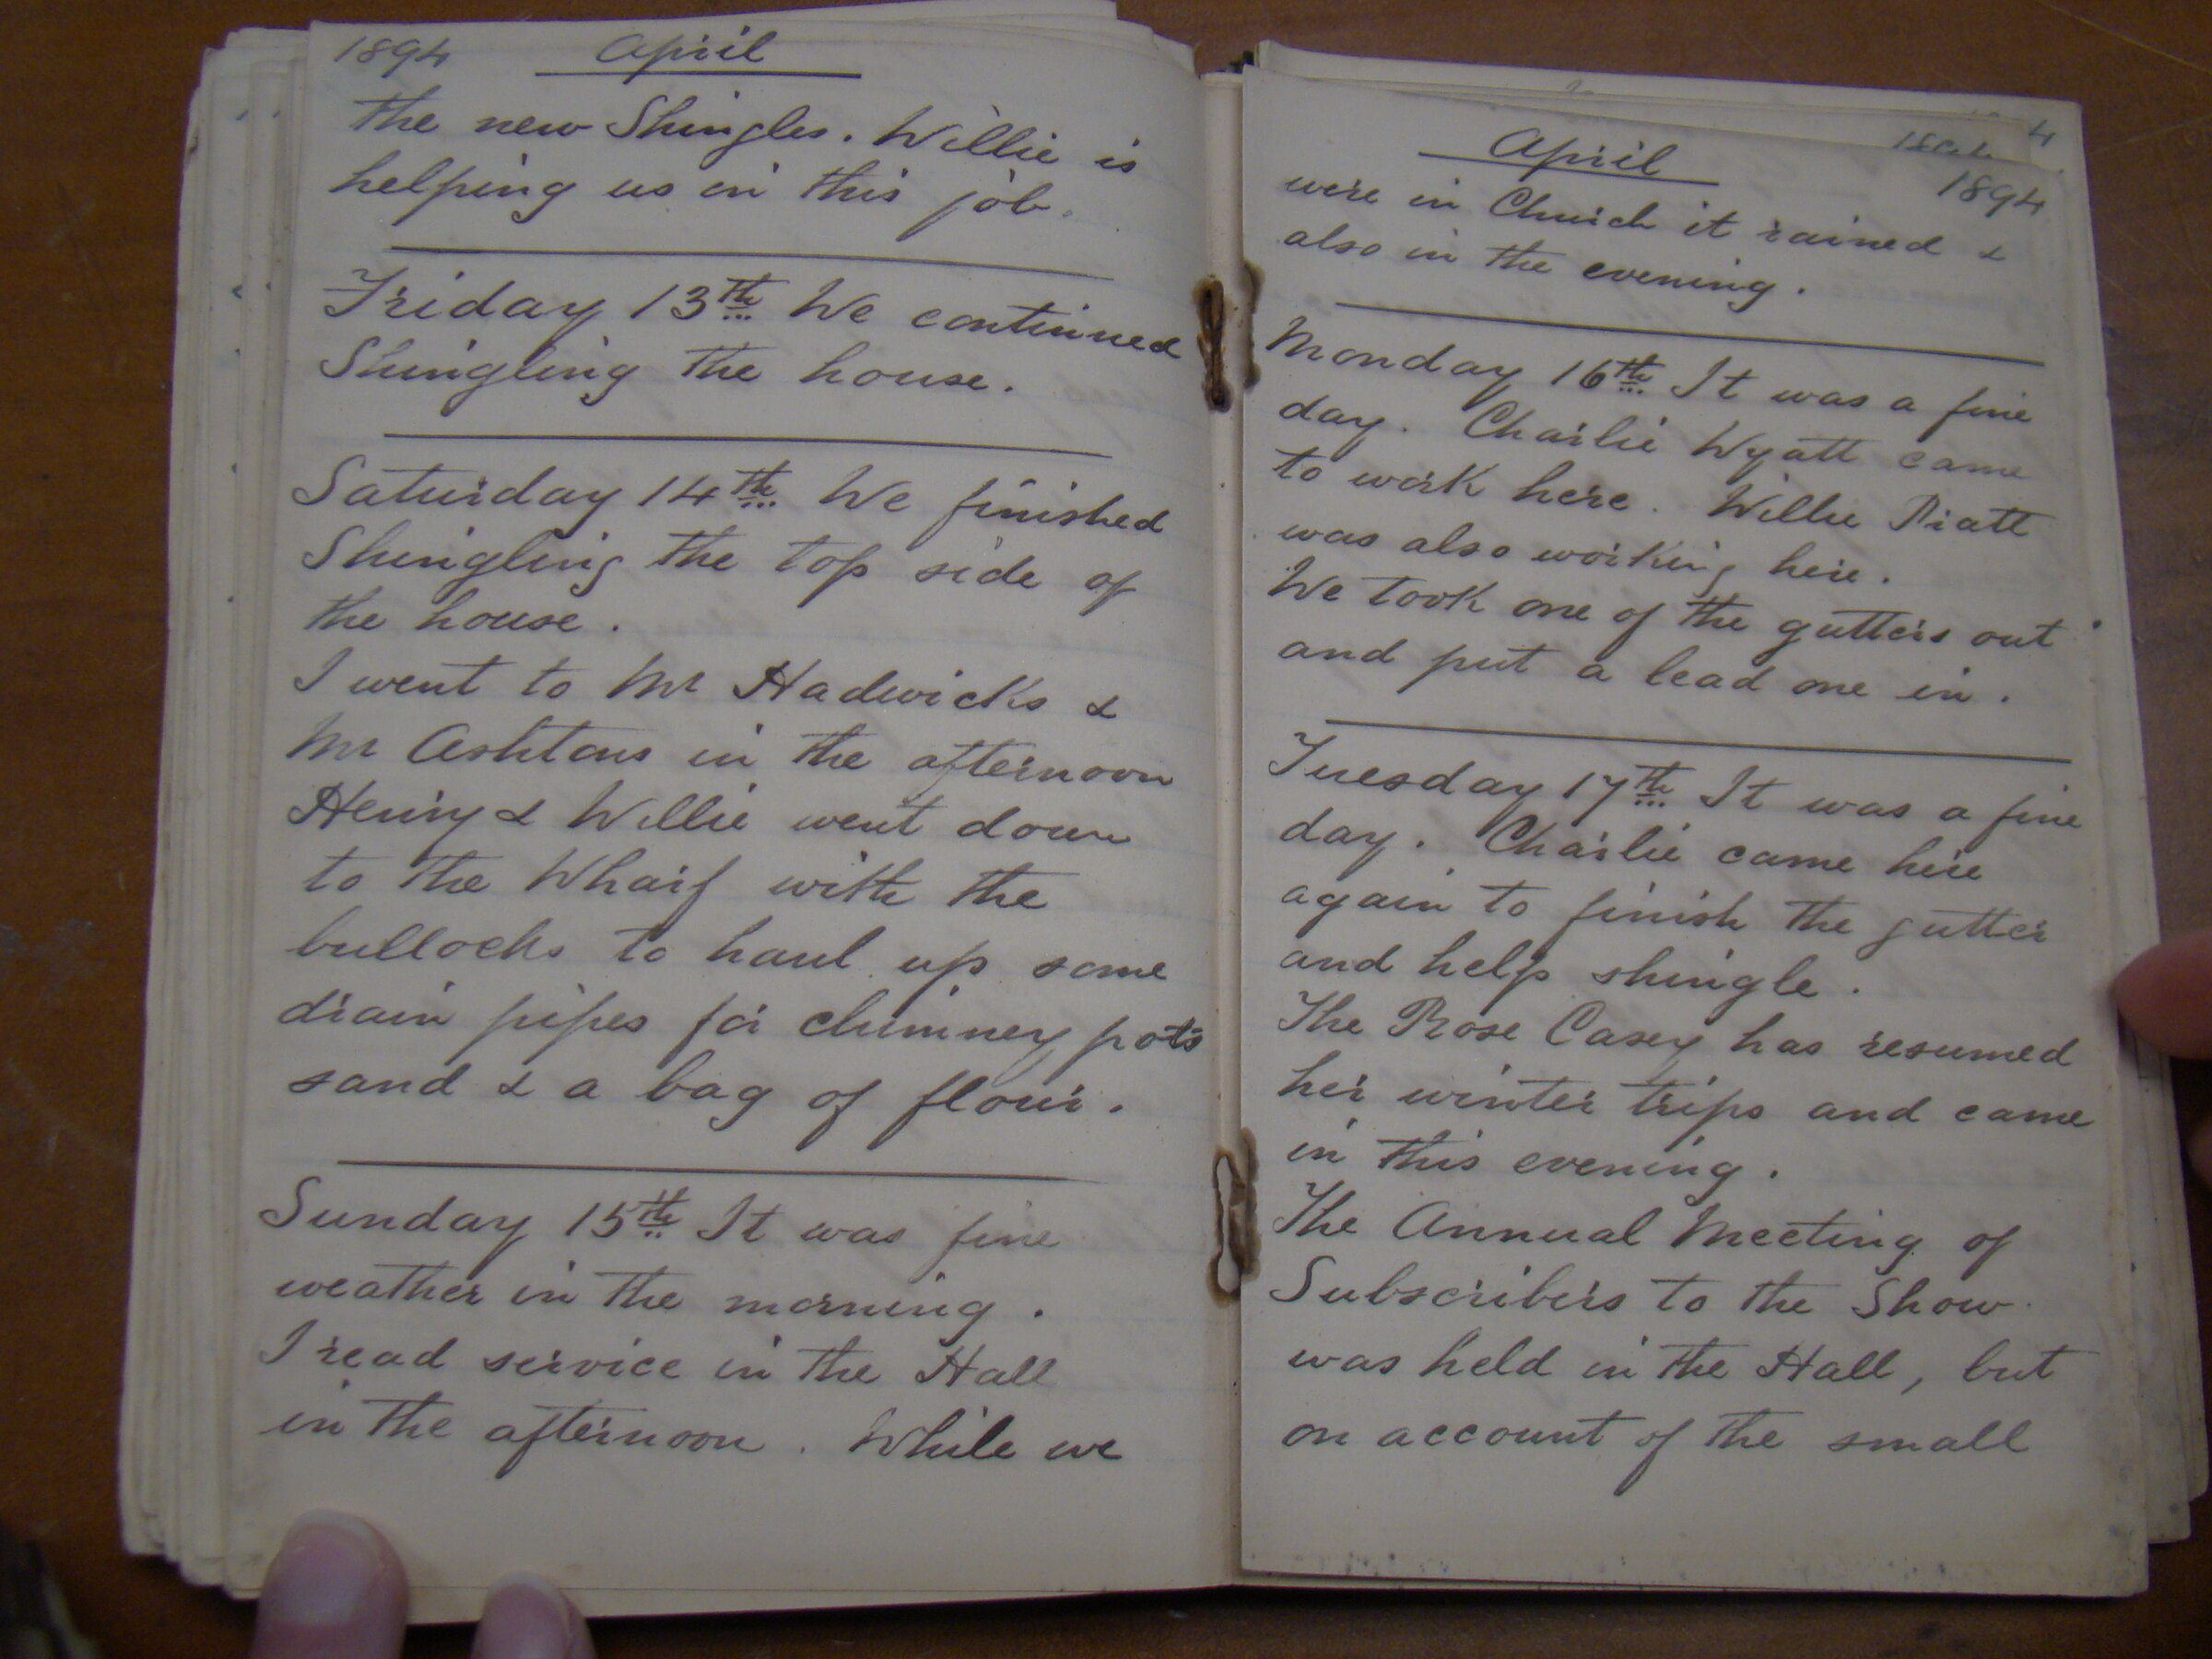 1894 April
the new Shingles. Willie is
helping us in this job.
Friday 13th We continued
Shingling the house.
Saturday 14th We finished
Shingling the top side of
the house.
I went to Mr Hadwicks &
Mr Ashtons in the afternoon
Henry & Willie went down
to the Wharf with the
bullocks to haul up some
drain pipes for chimney pots
sand & a bag of flour.
Sunday 15th It was fine
weather in the morning.
I read service in the Hall
in the afternoon. While we
1894
April 1894
were in Church it rained &
also in the evening.
Monday 16th It was a fine
day. Charlie Wyatt came
to work here. Willie Piatt
was also working here.
We took one of the gutters out
and put a lead one in.
Tuesday 17th It was a fine
day. Charlie came here
again to finish the gutter
and help shingle.
The Rose Casey has resumed
her winter trips and came
in this evening.
The Annual Meeting of
Subscribers to the Show
was held in the Hall, but
on account of the small